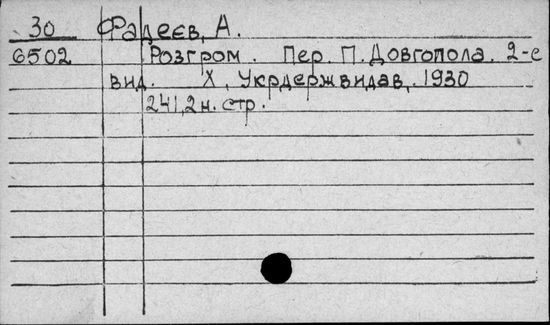 30 Фадеєв, А.
6502 Розгром. Пер. П. Довгопола. 2-е
вид. Х, Укрдержвидав, 1930
241,2 н. стр.